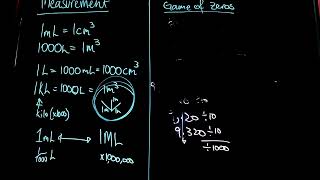 Measurement
1mL = 1cm³
1000L = 1m³
1L = 1000mL = 1000cm³
1kL = 1000L = 1m³
1m 1m 1m
kilo (x1000)
1mL ⟷ 1ML
1/1000 L x1,000,000
Game of zeros
20 ÷10
9.320 ÷10
÷1000